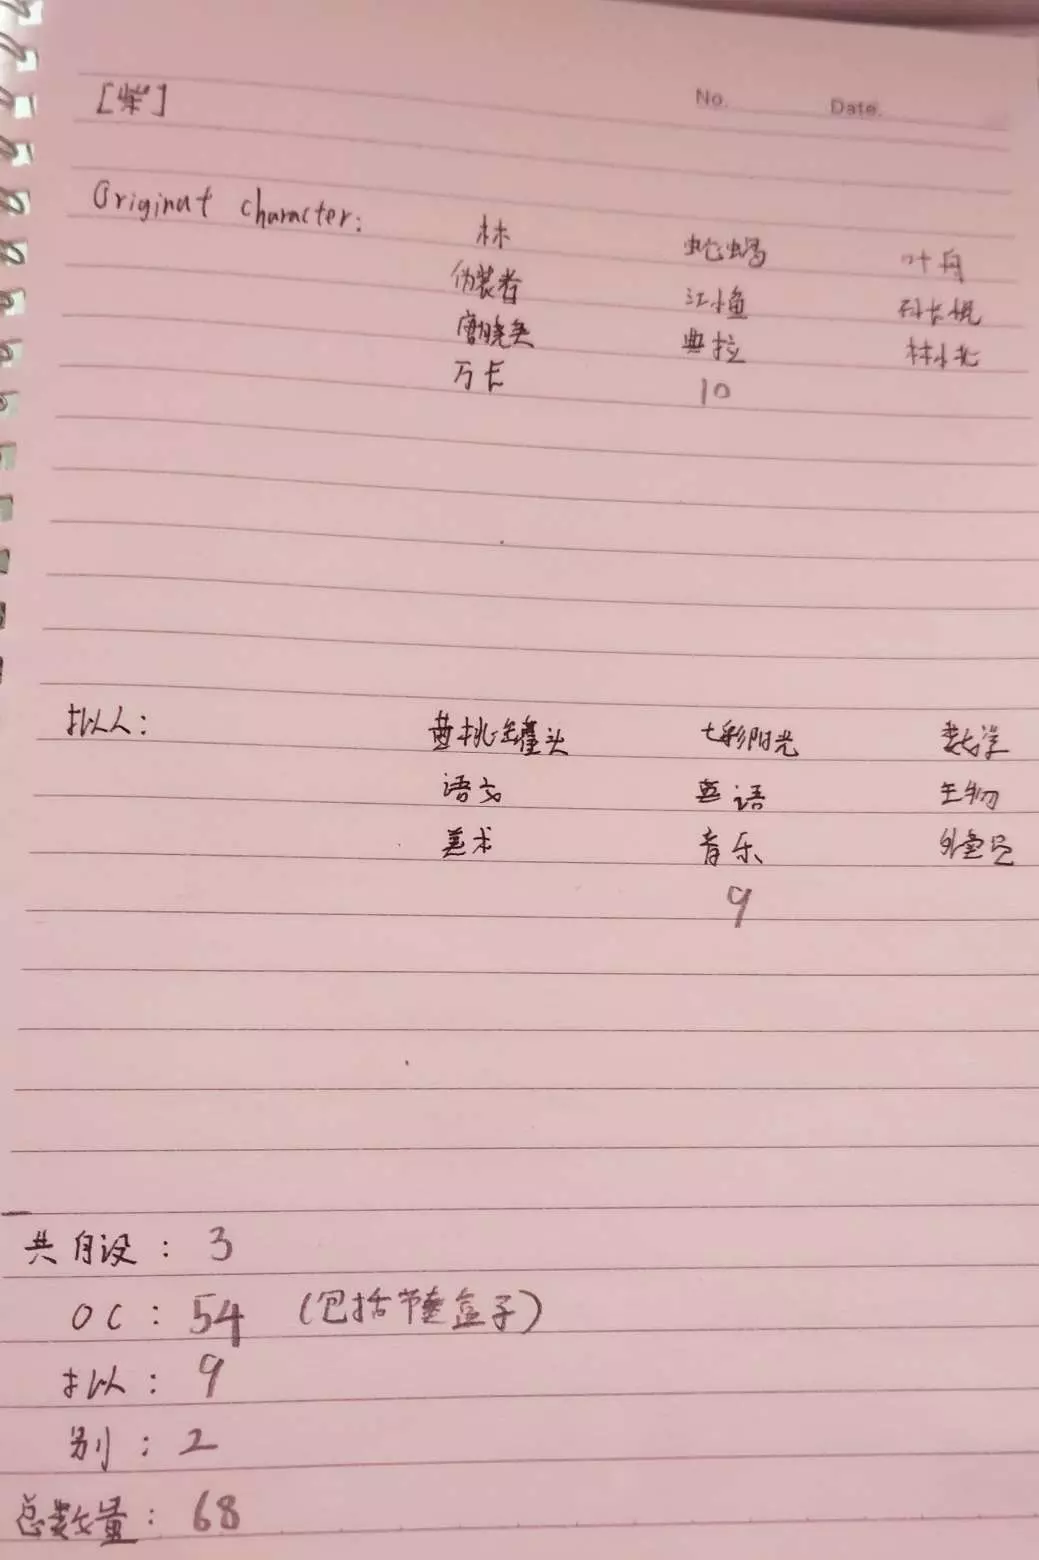 [柴]
No. Date.
Original character:
林 蛇蝎 叶舟
伪装者 江小鱼
唐晓英 典拉 林小北
万长 10
拟人:
黄桃罐头 七彩阳光 数学
语文 英语 生物
美术 音乐 外星
9
共自设: 3
OC: 54 (包括 盒子)
拟: 9
别: 2
总数量: 68